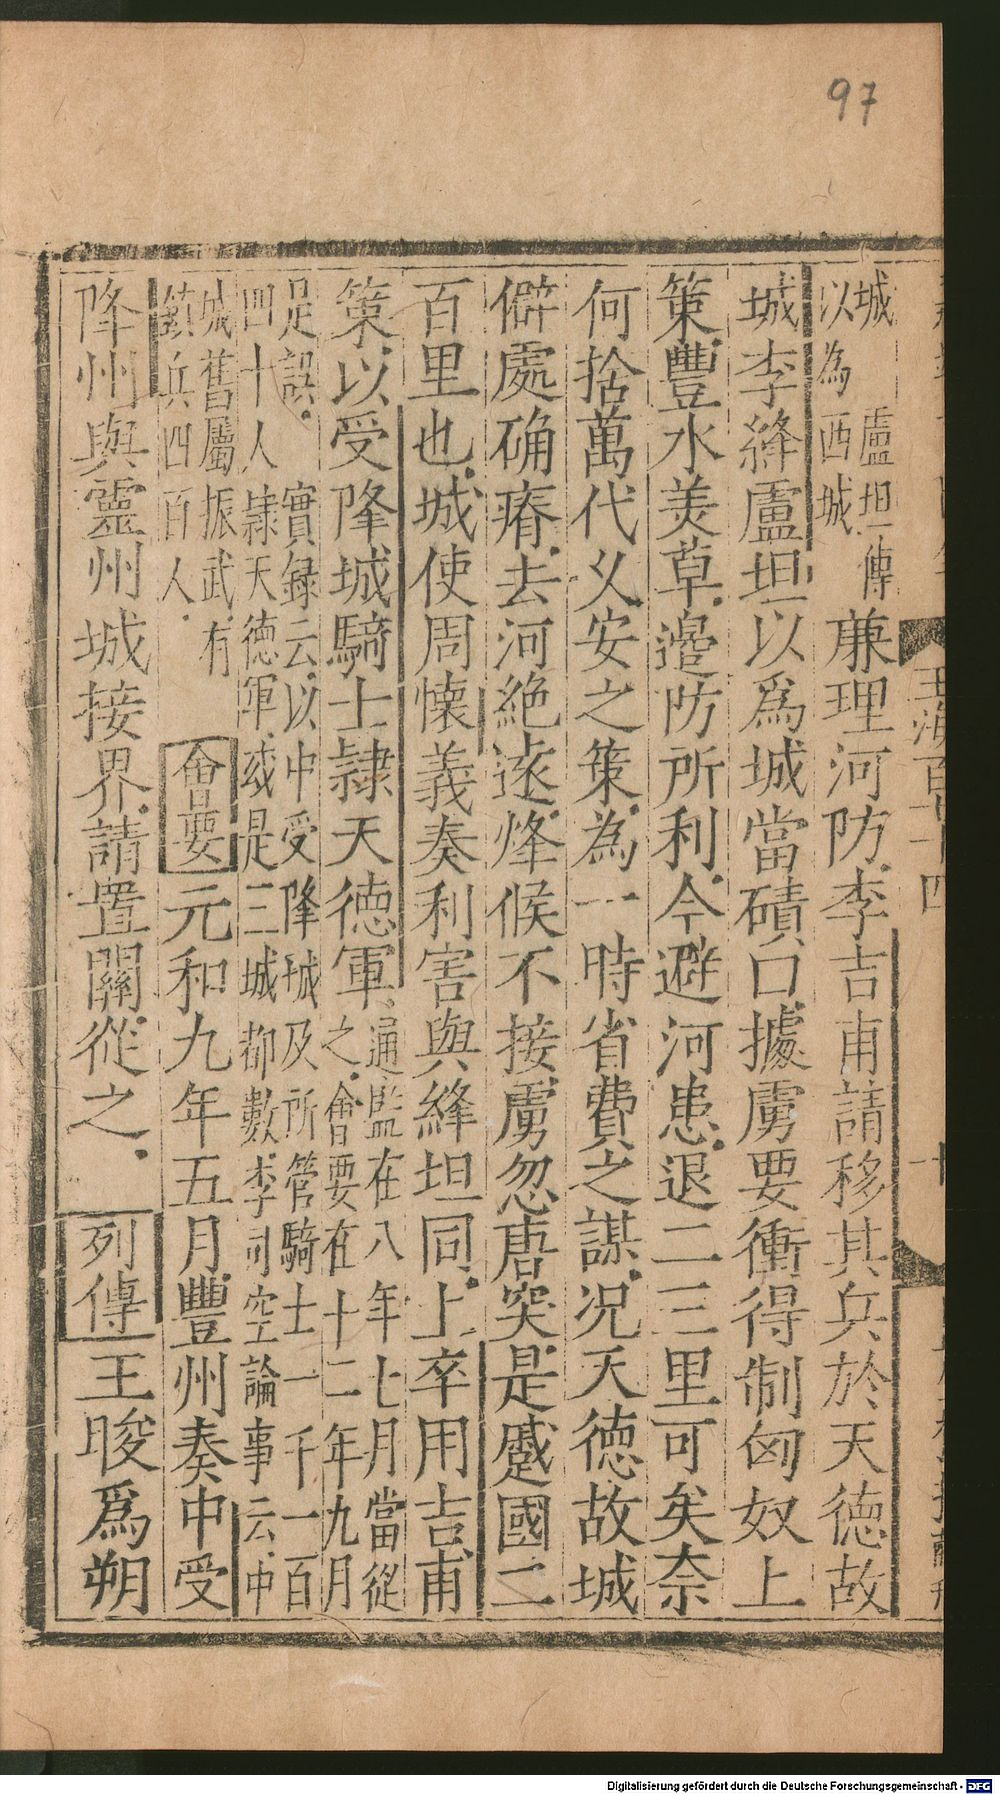 97
玉海百七十四
城 盧坦傳
以為西城
兼理河防李吉甫請移其兵於天德故
城李絳盧坦以爲城當磧口據虜要衝得制匈奴上
策豐水美草邉防所利今避河患退二三里可矣奈
何捨萬代乂安之策為一時省費之謀况天德故城
僻處确瘠去河絶逺烽候不接虜忽唐突是蹙國二
百里也城使周懷義奏利害與絳坦同上卒用吉甫
策以受降城騎士隷天德軍
通鑑在八年七月當從
之會要在十二年九月
足誤 實録云以中受降城及所管騎士一千一百
四十人隷天德軍或是三城都數李司空論事云中
城舊屬振武有
鎮兵四百人
會要元和九年五月豐州奏中受
降州與靈州城接界請置關從之 列傳王晙爲朔
Digitalisierung gefördert durch die Deutsche Forschungsgemeinschaft - DFG